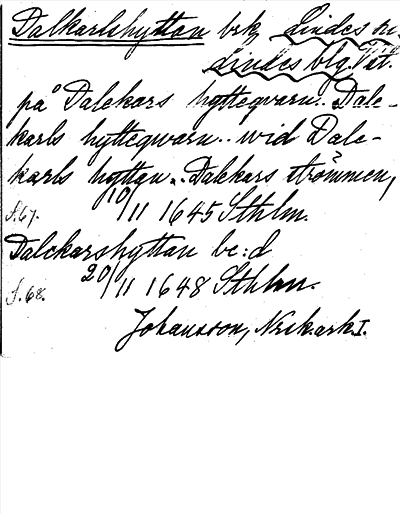 Dalkarlshyttan brk, Lindes sn.
Lindes blg, Vstm.
på Dalekars hyttegvarn.. Dale-
karls hyttegwarn.. wid Dale-
karls hyttan.. Dalekars strömmen,
s.67. 10/11 1645 Sthlm.
Dalekarshyttan be:d
s.68. 20/11 1648 Sthlm.
Johansson, Nork.ark I.